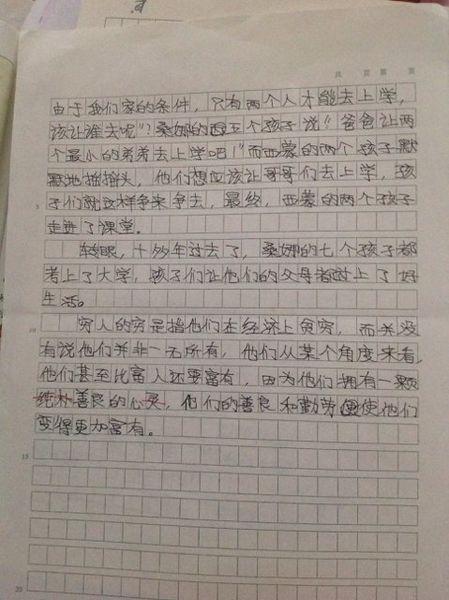 共 页 第 页
由于我们家的条件，只有两个人才能去上学，
该让谁去呢”？桑娜的五个孩子说“爸爸让两
个最小的弟弟去上学吧！”而西蒙的两个孩子默
默地摇摇头，他们想应该让哥哥们去上学，孩
子们就这样争来争去，最终，西蒙的两个孩子
5
走进了课堂。
转眼，十多年过去了，桑娜的七个孩子都
考上了大学，孩子们让他们的父母都过上了好
生活。
10
穷人的穷是指他们在经济上贫穷，而并没
有说他们并非一无所有，他们从某个角度来看，
他们甚至比富人还要富有，因为他们拥有一颗
纯朴善良的心灵，他们的善良和勤劳使他们
变得更加富有。
15
20